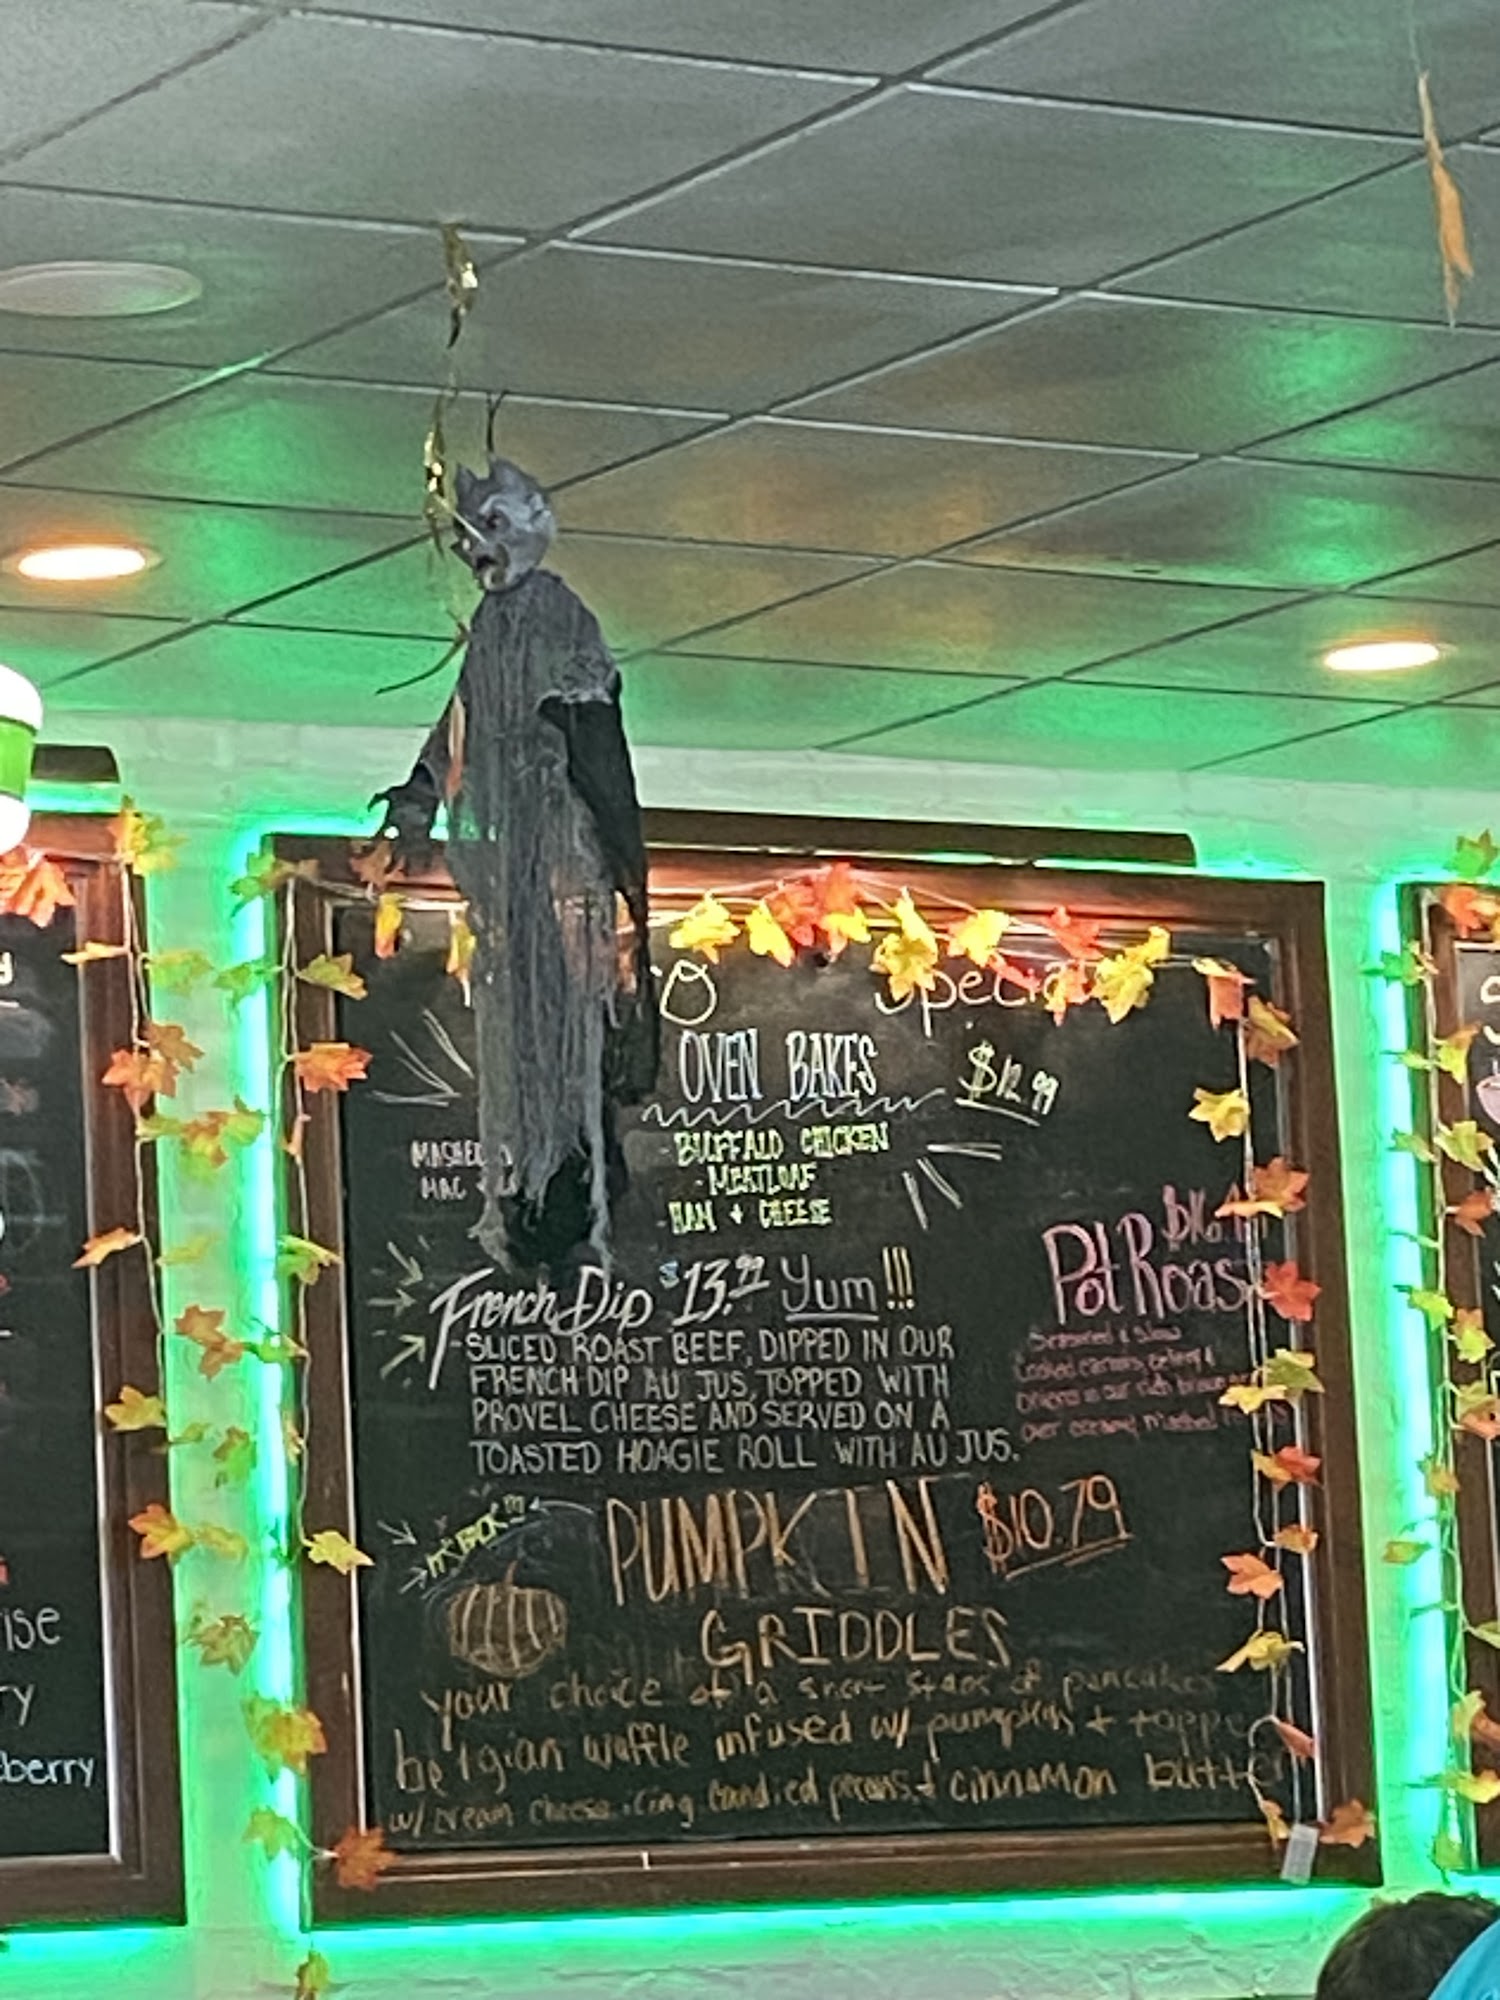 Special
OVEN BAKES $12.99
MASHED
MAC
- BUFFALO CHICKEN
- MEATLOAF
- HAM + CHEESE
French Dip $13.99 Yum!!!
- SLICED ROAST BEEF, DIPPED IN OUR
FRENCH DIP AU JUS, TOPPED WITH
PROVEL CHEESE AND SERVED ON A
TOASTED HOAGIE ROLL WITH AU JUS.
Pot Roast
Seasoned & Slow
Cooked carrots, celery &
Onions in our rich
over creamy mashed
IT'S BACK!!!
PUMPKIN $10.79
GRIDDLES
your choice of a short stack of pancakes
belgian waffle infused w/ pumpkin + toppe
w/ cream cheese icing candied pecans + cinnamon butter
ise
ry
berry